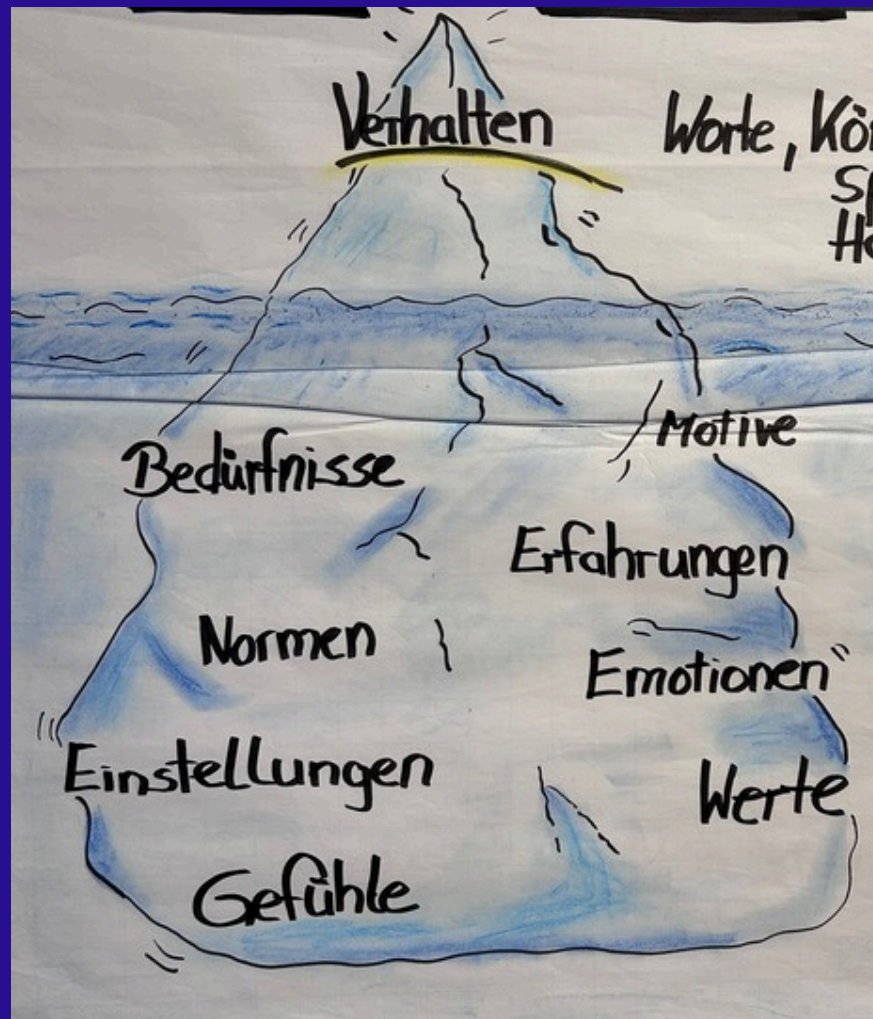 Verhalten
Worte,
Bedürfnisse
Motive
Erfahrungen
Normen
Emotionen
Einstellungen
Werte
Gefühle